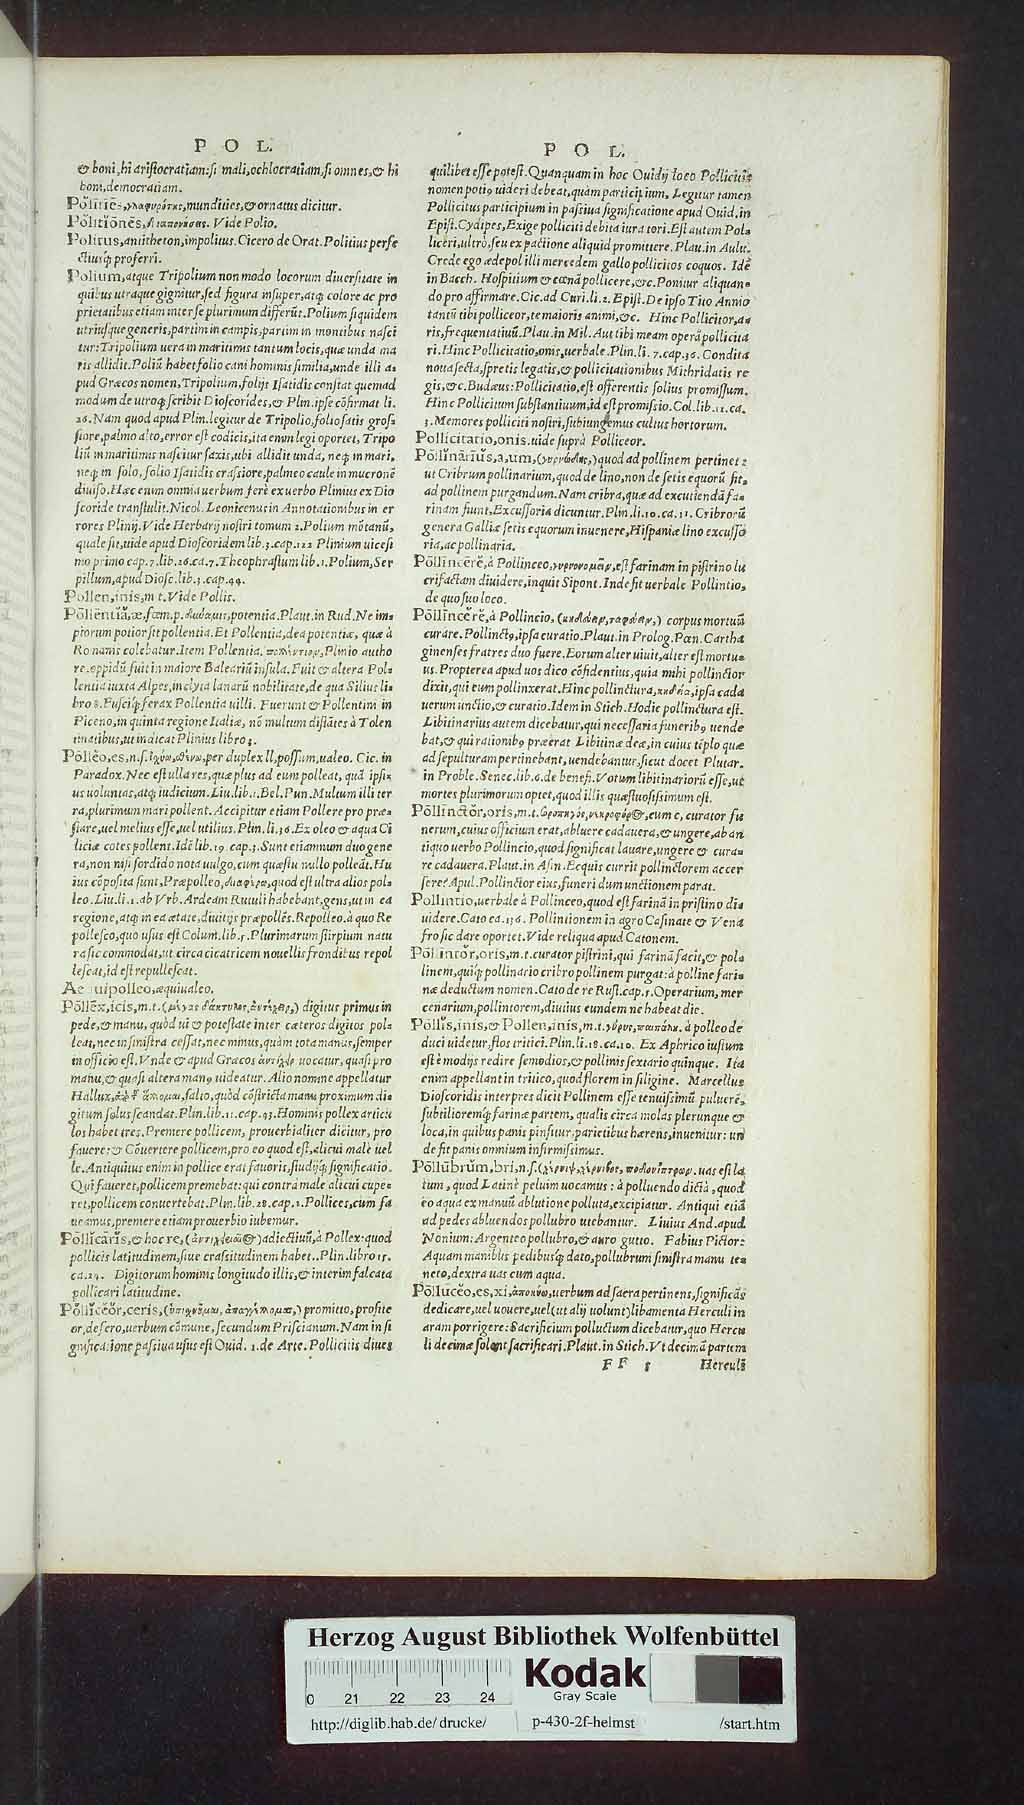 P O L.
& boni, hi aristocratiam: si mali, ochlocratiam, si omnes, & hi
boni, democratiam.
Polities, γλαφυρότης, mundities, & ornatus dicitur.
Politiones, Vide Polio.
Politus, antitheton, impolitus. Cicero de Orat. Politius perfe
ctiusq́; proferri.
Polium, atque Tripolium non modo locorum diuersitate in
quibus utraque gignitur, sed figura insuper, atq; colore ac pro
prietatibus etiam inter se plurimum differũt. Polium siquidem
utriusque generis, partim in campis, partim in montibus nasci
tur: Tripolium uerò in maritimis tantum locis, quæ unda ma
ris allidit. Poliũ habet folio cani hominis similia, unde illi a-
pud Græcos nomen, Tripolium, folijs Isatidis constat quemad
modum de utroq; scribit Dioscorides, & Plin. ipse cõfirmat li.
26. Nam quod apud Plin. legitur de Tripolio, folio satis gros-
siore, palmo alto, error est codicis, ita enim legi oportet, Tripo
liũ in maritimis nascitur saxis, ubi allidit unda, neq; in mari,
neq; in solo, folio Isatidis crassiore, palmeo caule in mucronẽ
diuiso. Hæc enim omnia uerbum ferè ex uerbo Plinius ex Dio
scoride transtulit. Nicol. Leonicenus in Annotationibus in er
rores Plinij. Vide Herbarij nostri tomum 2. Polium mõtanũ,
quale sit, uide apud Dioscoridem lib. 3. cap. 122 Plinium uicesi
mo primo cap. 7. lib. 26. ca. 7. Theophrastum lib. 1. Polium, Ser
pillum, apud Diosc. lib. 3. cap. 44.
Pollen, inis, m t. Vide Pollis.
Pollentia, æ, fœm. p. δύναμις, potentia. Plaut. in Rud. Ne im-
piorum potior sit pollentia. Et Pollentia, dea potentiæ, quæ à
Romanis colebatur. Item Pollentia, Plinio autho
re, oppidũ fuit in maiore Balearĩu insula. Fuit & altera Pol-
lentia iuxta Alpes, inclyta lanarũ nobilitate, de qua Silius li-
bro 8. Fusciq́; ferax Pollentia uilli. Fuerunt & Pollentini in
Piceno, in quinta regione Italiæ, nõ multum distãtes à Tolen
tinatibus, ut indicat Plinius libro 3.
Polleo, es, n. s. ἰσχύω, σθένω, per duplex ll, possum, ualeo. Cic. in
Paradox. Nec est ulla res, quæ plus ad eum polleat, quã ipsi-
us uoluntas, atq; iudicium. Liu. lib. 1. Bel. Pun. Multum illi ter
ra, plurimum mari pollent. Accipitur etiam Pollere pro præ-
stare, uel melius esse, uel utilius. Plin. li. 36. Ex oleo & aqua Ci
liciæ cotes pollent. Idẽ lib. 19. cap. 3. Sunt etiamnum duo gene
ra, non nisi sordido nota uulgo, cum quæstu nullo polleãt. Hu
ius cõposita sunt, Præpolleo, quod est ultra alios pol-
leo. Liu. li. 1. ab Vrb. Ardeam Rutuli habebant, gens, ut in ea
regione, atq; in ea ætate, diuitijs præpollẽs. Repolleo, à quo Re
pollesco, quo usus est Colum. lib. 5. Plurimarum stirpium natu
ra sic commodat, ut circa cicatricem nouellis frondibus repol
lescat, id est repullescat.
Aequipolleo, æquiualeo.
Pollex, icis, m. t. (μέγας δάκτυλος, ἀντίχειρ,) digitus primus in
pede, & manu, quòd ui & potestate inter cæteros digitos pol-
leat, nec in sinistra cessat, nec minus, quàm tota manus, semper
in officio est. Vnde & apud Græcos ἀντίχειρ uocatur, quasi pro
manu, & quasi altera manꝰ uideatur. Alio nomine appellatur
Hallux, salto, quòd cõstricta manu proximum di-
gitum solus scandat. Plin. lib. 11. cap. 43. Hominis pollex articu
los habet tres. Premere pollicem, prouerbialiter dicitur, pro
fauere: & Cõuertere pollicem, pro eo quod est, alicui malè uel
le. Antiquitus enim in pollice erat fauoris, studijq́; significatio.
Qui faueret, pollicem premebat: qui contrà male alicui cupe-
ret, pollicem conuertebat. Plin. lib. 28. cap. 2. Pollices, cum fa
ueamus, premere etiam prouerbio iubemur.
Pollicaris, & hoc re, adiectiuũ, à Pollex: quod
pollicis latitudinem, siue crassitudinem habet. Plin. libro 15.
ca. 24. Digitorum hominis longitudo illis, & interim falcata
pollicari latitudine.
Polliceor, ceris, (ὑπισχνοῦμαι, ἀπαγγέλλομαι,) promitto, profite
or, defero, uerbum cõmune, secundum Priscianum. Nam in si
gnificatione passiua usus est Ouid. 1. de Arte. Pollicitis diues
P O L.
quilibet esse potest. Quanquam in hoc Ouidij loco Pollicitis
nomen potiꝰ uideri debeat, quàm participium. Legitur tamen
Pollicitus participium in passiua significatione apud Ouid. in
Epist. Cydipes, Exige polliciti debita iura tori. Est autem Pol-
liceri, ultrò, seu ex pactione aliquid promittere. Plau. in Aulu.
Crede ego ædepol illi mercedem gallo pollicitos coquos. Idẽ
in Bacch. Hospitium & cœnã pollicere, &c. Ponitur aliquan-
do pro affirmare. Cic. ad Curi. li. 2. Epist. De ipso Tito Annio
tantũ tibi polliceor, te maioris animi, &c. Hinc Pollicitor, a-
ris, frequentatiuũ. Plau. in Mil. Aut tibi meam operã pollicita
ri. Hinc Pollicitatio, onis, uerbale. Plin. li. 7. cap. 36. Condita
noua secta, spretis legatis, & pollicitationibus Mithridatis re
gis, &c. Budæus: Pollicitatio, est offerentis solius promissum.
Hinc Pollicitum substantiuum, id est promissio. Col. lib. 11. ca.
3. Memores polliciti nostri, subiungemus cultus hortorum.
Pollicitatio, onis. uide suprà Polliceor.
Pollinarius, a, um, quod ad pollinem pertinet:
ut Cribrum pollinarium, quod de lino, non de setis equorũ fit,
ad pollinem purgandum. Nam cribra, quæ ad excutiendã fa-
rinam fiunt, Excussoria dicuntur. Plin. li. 10. ca. 11. Cribrorũ
genera Galliæ setis equorum inuenere, Hispaniæ lino excusso
ria, ac pollinaria.
Pollincere, à Pollinceo, est farinam in pistrino lu
crifactam diuidere, inquit Sipont. Inde fit uerbale Pollintio,
de quo suo loco.
Pollincere, à Pollincio, (κηδεύειν, ταφεύειν,) corpus mortuũ
curare. Pollinctꝰ, ipsa curatio. Plaut. in Prolog. Pœn. Cartha
ginenses fratres duo fuere. Eorum alter uiuit, alter est mortu-
us. Propterea apud uos dico cõfidentius, quia mihi pollinctor
dixit, qui eum pollinxerat. Hinc pollinctura, κηδεία, ipsa cada
uerum unctio, & curatio. Idem in Stich. Hodie pollinctura est.
Libitinarius autem dicebatur, qui necessaria funeribꝰ uende
bat, & qui rationibꝰ præerat Libitinæ deæ, in cuius tẽplo quæ
ad sepulturam pertinebant, uendebantur, sicut docet Plutar.
in Proble. Senec. lib. 6. de benefi. Votum libitinariorũ esse, ut
mortes plurimorum optet, quod illis quæstuosissimum est.
Pollinctor, oris, m. t. cum c, curator fu
nerum, cuius officium erat, abluere cadauera, & ungere, ab an
tiquo uerbo Pollincio, quod significat lauare, ungere & cura-
re cadauera. Plaut. in Asin. Ecquis currit pollinctorem accer
sere? Apul. Pollinctor eius, funeri dum unctionem parat.
Pollintio, uerbale à Pollinceo, quod est farinã in pristino di-
uidere. Cato ca. 136. Pollintionem in agro Casinate & Vena
fro sic dare oportet. Vide reliqua apud Catonem.
Pollintor, oris, m. t. curator pistrini, qui farinã facit, & pol-
linem, quiq́; pollinario cribro pollinem purgat: à polline fari-
næ deductum nomen. Cato de re Rust. cap. 5. Operarium, mer
cenarium, pollintorem, diutius eundem ne habeat die.
Pollis, inis, & Pollen, inis, m. t. γῦρις, παιπάλη. à polleo de
duci uidetur, flos tritici. Plin. li. 18. ca. 10. Ex Aphrico iustum
est è modijs redire semodios, & pollinis sextario quinque. Ita
enim appellant in tritico, quod florem in siligine. Marcellus
Dioscoridis interpres dicit Pollinem esse tenuissimũ puluerẽ,
subtilioremq́; farinæ partem, qualis circa molas plerunque &
loca, in quibus panis pinsitur, parietibus hærens, inuenitur: un
de fit panis omnium infirmissimus.
Pollubrum, bri, n. s. (χέρνιψ, χέρνιβον, ποδονίπτρον. uas est la
tum, quod Latinè peluim uocamus: à polluendo dictũ, quod
eo aqua ex manuũ ablutione polluta, excipiatur. Antiqui etiã
ad pedes abluendos pollubro utebantur. Liuius And. apud
Nonium: Argenteo pollubro, & auro gutto. Fabius Pictor:
Aquam manibus pedibusq́; dato, pollubrum sinistra manu te-
neto, dextra uas cum aqua.
Polluceo, es, xi, uerbum ad sacra pertinens, significãs
dedicare, uel uouere, uel (ut alij uolunt) libamenta Herculi in
aram porrigere: Sacrificium polluctum dicebatur, quo Hercu
li decimæ solent sacrificari. Plaut. in Stich. Vt decimã partem
FF 5 Herculi
Herzog August Bibliothek Wolfenbüttel
0 21 22 23 24
Kodak
Gray Scale
http://diglib.hab.de/drucke/ p-430-2f-helmst /start.htm